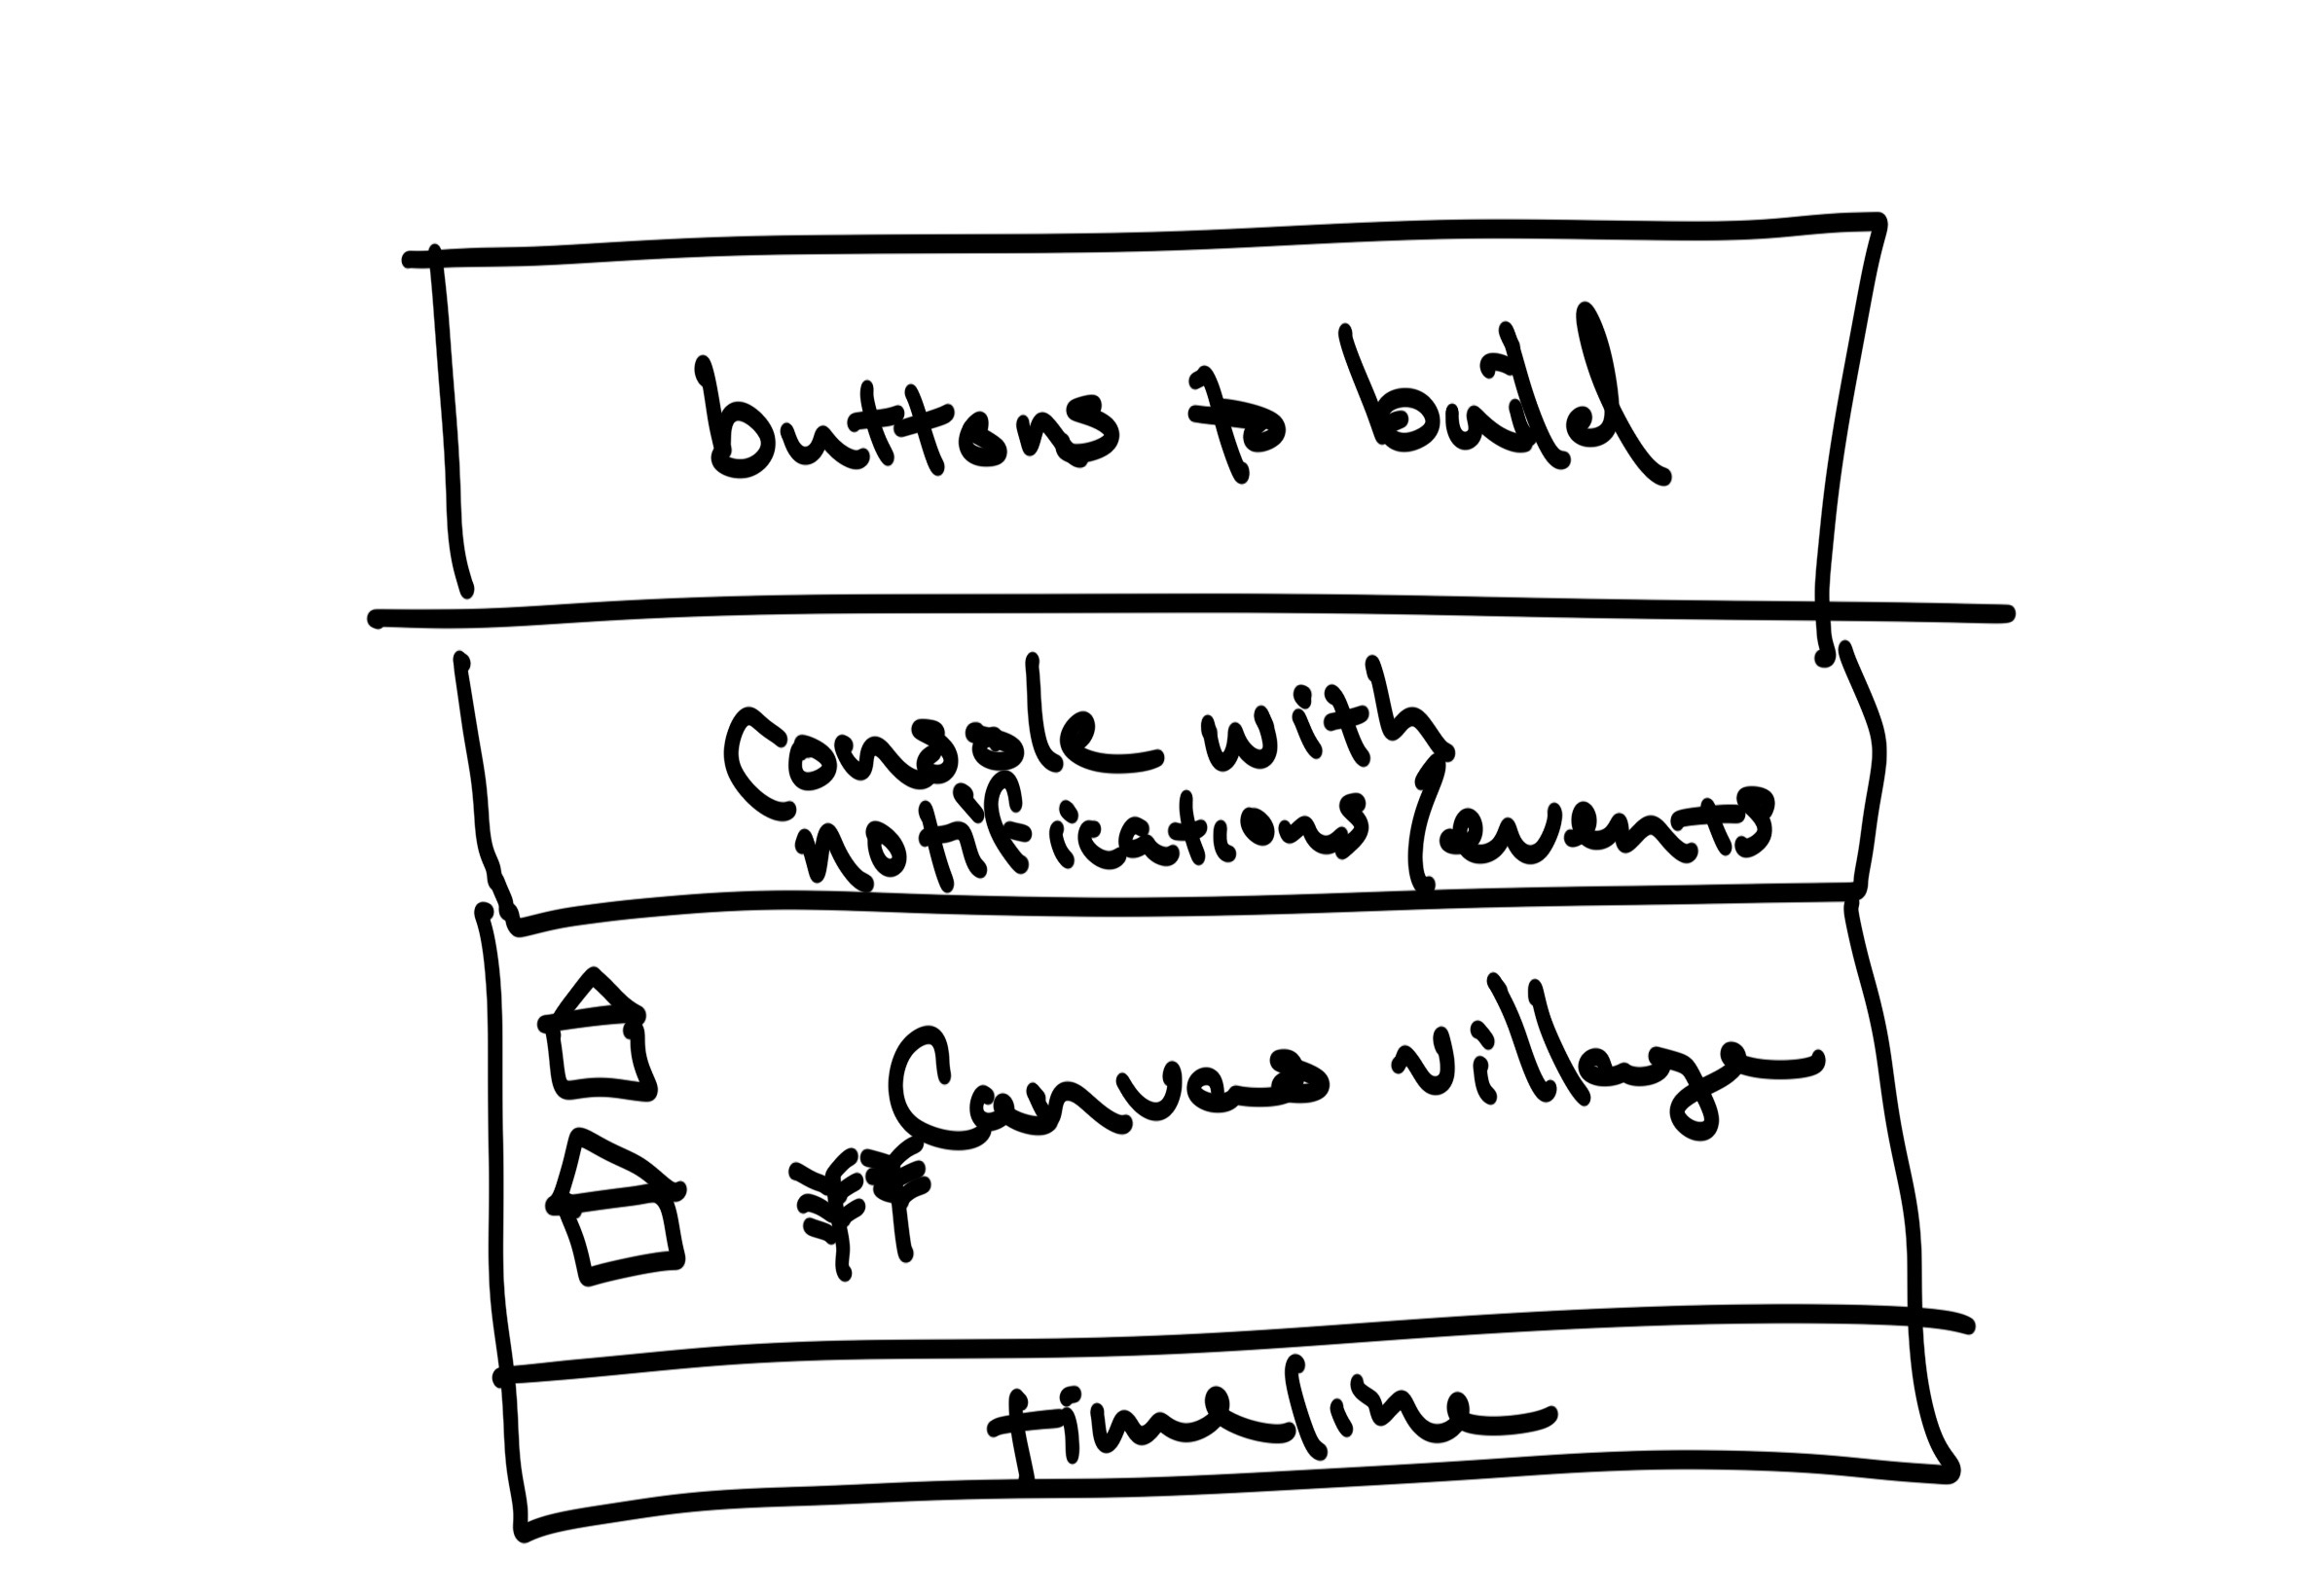 buttons to build
Console with
notifications / events
Canvas village
timeline